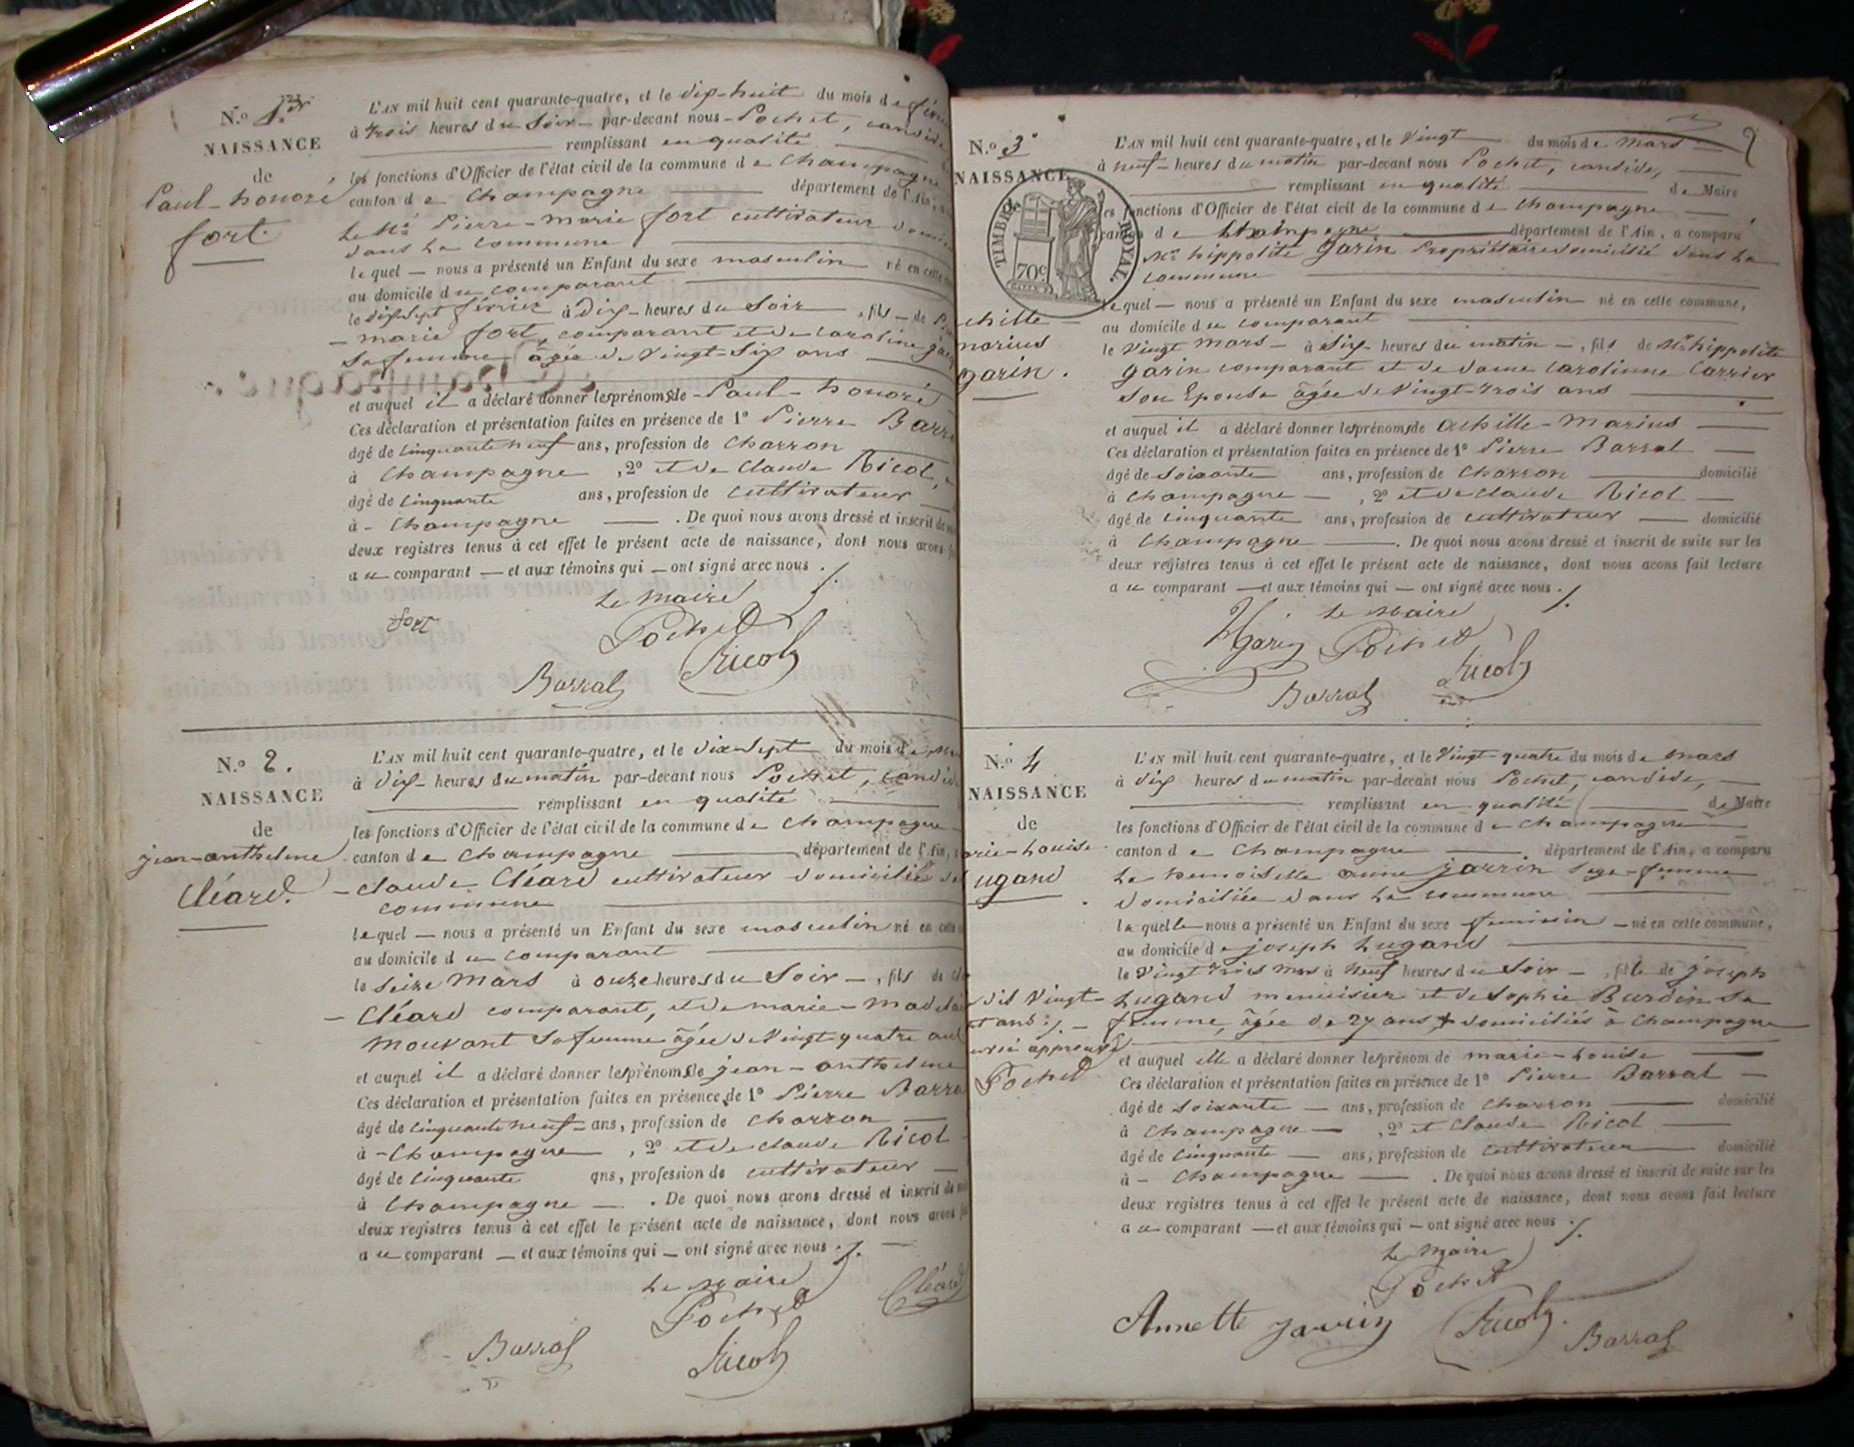 N.º 1.er
NAISSANCE
de
Paul-honoré
fort.
L'AN mil huit cent quarante-quatre, et le dix-huit du mois de
à trois heures du Soir par-devant nous Pochet, candide
remplissant en qualité
les fonctions d'Officier de l'état civil de la commune de Champagne
canton de Champagne département de l'Ain,
le Sr Pierre-marie fort cultivateur
dans la commune
lequel — nous a présenté un Enfant du sexe masculin né en cette
au domicile du comparant
le dix-sept février à Dix- heures du Soir , fils — de
- marie fort, comparant et de caroline
Sa femme âgée de Vingt-Six ans
et auquel il a déclaré donner les prénoms de Paul-honoré
Ces déclaration et présentation faites en présence de 1º Pierre
âgé de Cinquante neuf ans, profession de Charron
à Champagne , 2º et de Claude Ricol,
âgé de Cinquante ans, profession de Cultivateur
à - Champagne . De quoi nous avons dressé et inscrit de
deux registres tenus à cet effet le présent acte de naissance, dont nous avons
au comparant — et aux témoins qui — ont signé avec nous ./.
Le maire
fort Pochet
Barral Ricol
N.º 2.
NAISSANCE
de
jean-anthelme
Cléard.
L'AN mil huit cent quarante-quatre, et le dix-Sept du mois de
à Dix- heures du matin par-devant nous Pochet,
remplissant en qualité
les fonctions d'Officier de l'état civil de la commune de Champagne
canton de Champagne département de l'Ain,
- claude Cléard cultivateur domicilié
commune
lequel — nous a présenté un Enfant du sexe masculin né en
au domicile du comparant
le Seize Mars à onze heures du Soir — , fils de
- Cléard comparant, et de marie-
Mouvant Sa femme âgée de Vingt quatre ans
et auquel il a déclaré donner les prénoms de jean-anthelme
Ces déclaration et présentation faites en présence de 1º Pierre
âgé de Cinquante neuf ans, profession de Charron
à - Champagne , 2º et de Claude Ricol
âgé de Cinquante ans, profession de Cultivateur
à Champagne . De quoi nous avons dressé et inscrit de
deux registres tenus à cet effet le présent acte de naissance, dont nous avons
au comparant — et aux témoins qui — ont signé avec nous ./.
Le maire
Pochet Cléard
Barral Ricol
N.º 3º
NAISSANCE
TIMBRE ROYAL
70c
marius
garin.
L'AN mil huit cent quarante-quatre, et le Vingt du mois de Mars
à neuf- heures du matin par-devant nous Pochet, candide,
remplissant en qualité de Maire
les fonctions d'Officier de l'état civil de la commune de Champagne
canton de Champagne département de l'Ain, a comparu
Mr hippolite garin Propriétaire domicilié dans la
commune
lequel — nous a présenté un Enfant du sexe masculin né en cette commune,
au domicile du comparant
le Vingt Mars — à Six- heures du matin — , fils de Mr hippolite
garin comparant et de dame carolinne Carrier
Son Epouse âgée de Vingt-trois ans
et auquel il a déclaré donner les prénoms de achille-Marius
Ces déclaration et présentation faites en présence de 1º Pierre Barral
âgé de Soixante ans, profession de Charron domicilié
à Champagne , 2º et de claude Ricol
âgé de Cinquante ans, profession de Cultivateur domicilié
à Champagne . De quoi nous avons dressé et inscrit de suite sur les
deux registres tenus à cet effet le présent acte de naissance, dont nous avons fait lecture
au comparant — et aux témoins qui — ont signé avec nous ./.
Le Maire
H garin Pochet
Barral Ricol
N.º 4
NAISSANCE
de
L'AN mil huit cent quarante-quatre, et le Vingt-quatre du mois de Mars
à Dix heures du matin par-devant nous Pochet, candide,
remplissant en qualité de Maire
les fonctions d'Officier de l'état civil de la commune de Champagne
canton de Champagne département de l'Ain, a comparu
La Demoiselle anne jarrin Sage-femme
domiciliée dans la commune
laquelle — nous a présenté un Enfant du sexe feminin — né en cette commune,
au domicile de joseph Lugand
le Vingt trois Mars à Neuf heures du Soir — , fille de joseph
Lugand menuisier et de Sophie Burdin Sa
femme, âgée de 27 ans domiciliés à Champagne
approuvé
Pochet
et auquel elle a déclaré donner les prénom de marie-Louise
Ces déclaration et présentation faites en présence de 1º Pierre Barral
âgé de Soixante — ans, profession de Charron domicilié
à Champagne — , 2º et Claude Ricol
âgé de Cinquante — ans, profession de Cultivateur domicilié
à - Champagne . De quoi nous avons dressé et inscrit de suite sur les
deux registres tenus à cet effet le présent acte de naissance, dont nous avons fait lecture
au comparant — et aux témoins qui — ont signé avec nous ./.
Le Maire
Pochet
Annette jarrin Ricol Barral